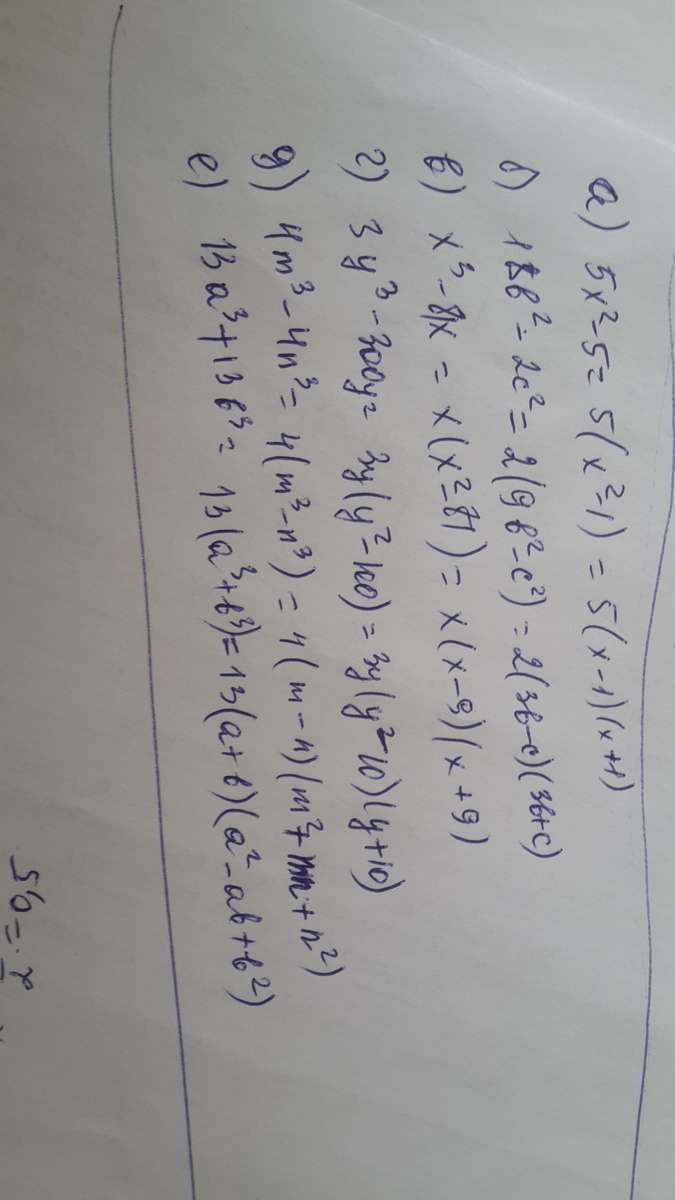 а) 5x²-5= 5(x²-1) = 5(x-1)(x+1)
б) 18b²-2c²= 2(9b²-c²)=2(3b-c)(3b+c)
в) x³-81x = x(x²-81)= x(x-9)(x+9)
г) 3y³-300y= 3y(y²-100)=3y(y²-10)(y+10)
д) 4m³-4n³= 4(m³-n³)=4(m-n)(m²+mn+n²)
е) 13a³+13b³= 13(a³+b³)=13(a+b)(a²-ab+b²)